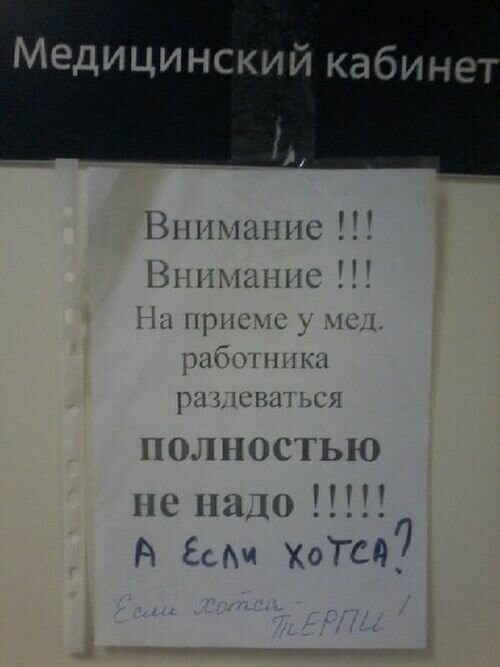 Медицинский кабинет
Внимание !!!
Внимание !!!
На приеме у мед.
работника
раздеваться
полностью
не надо !!!!!
А Если хотса?
Если хотса -
ТЕРПИ!